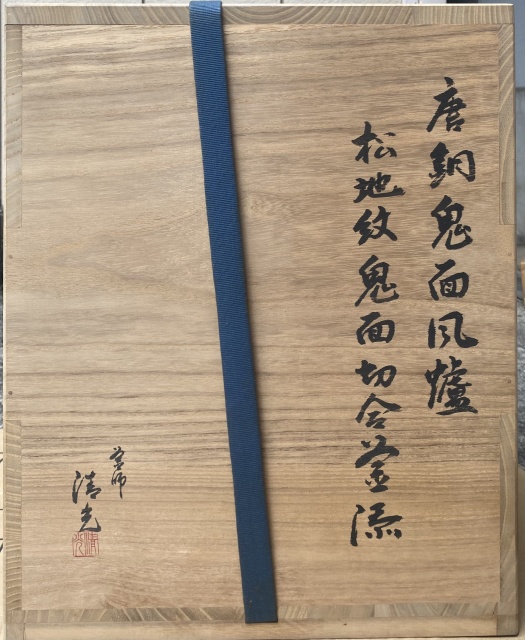 唐銅鬼面風爐
松地紋鬼面切合釜添
釜師
清光
清光